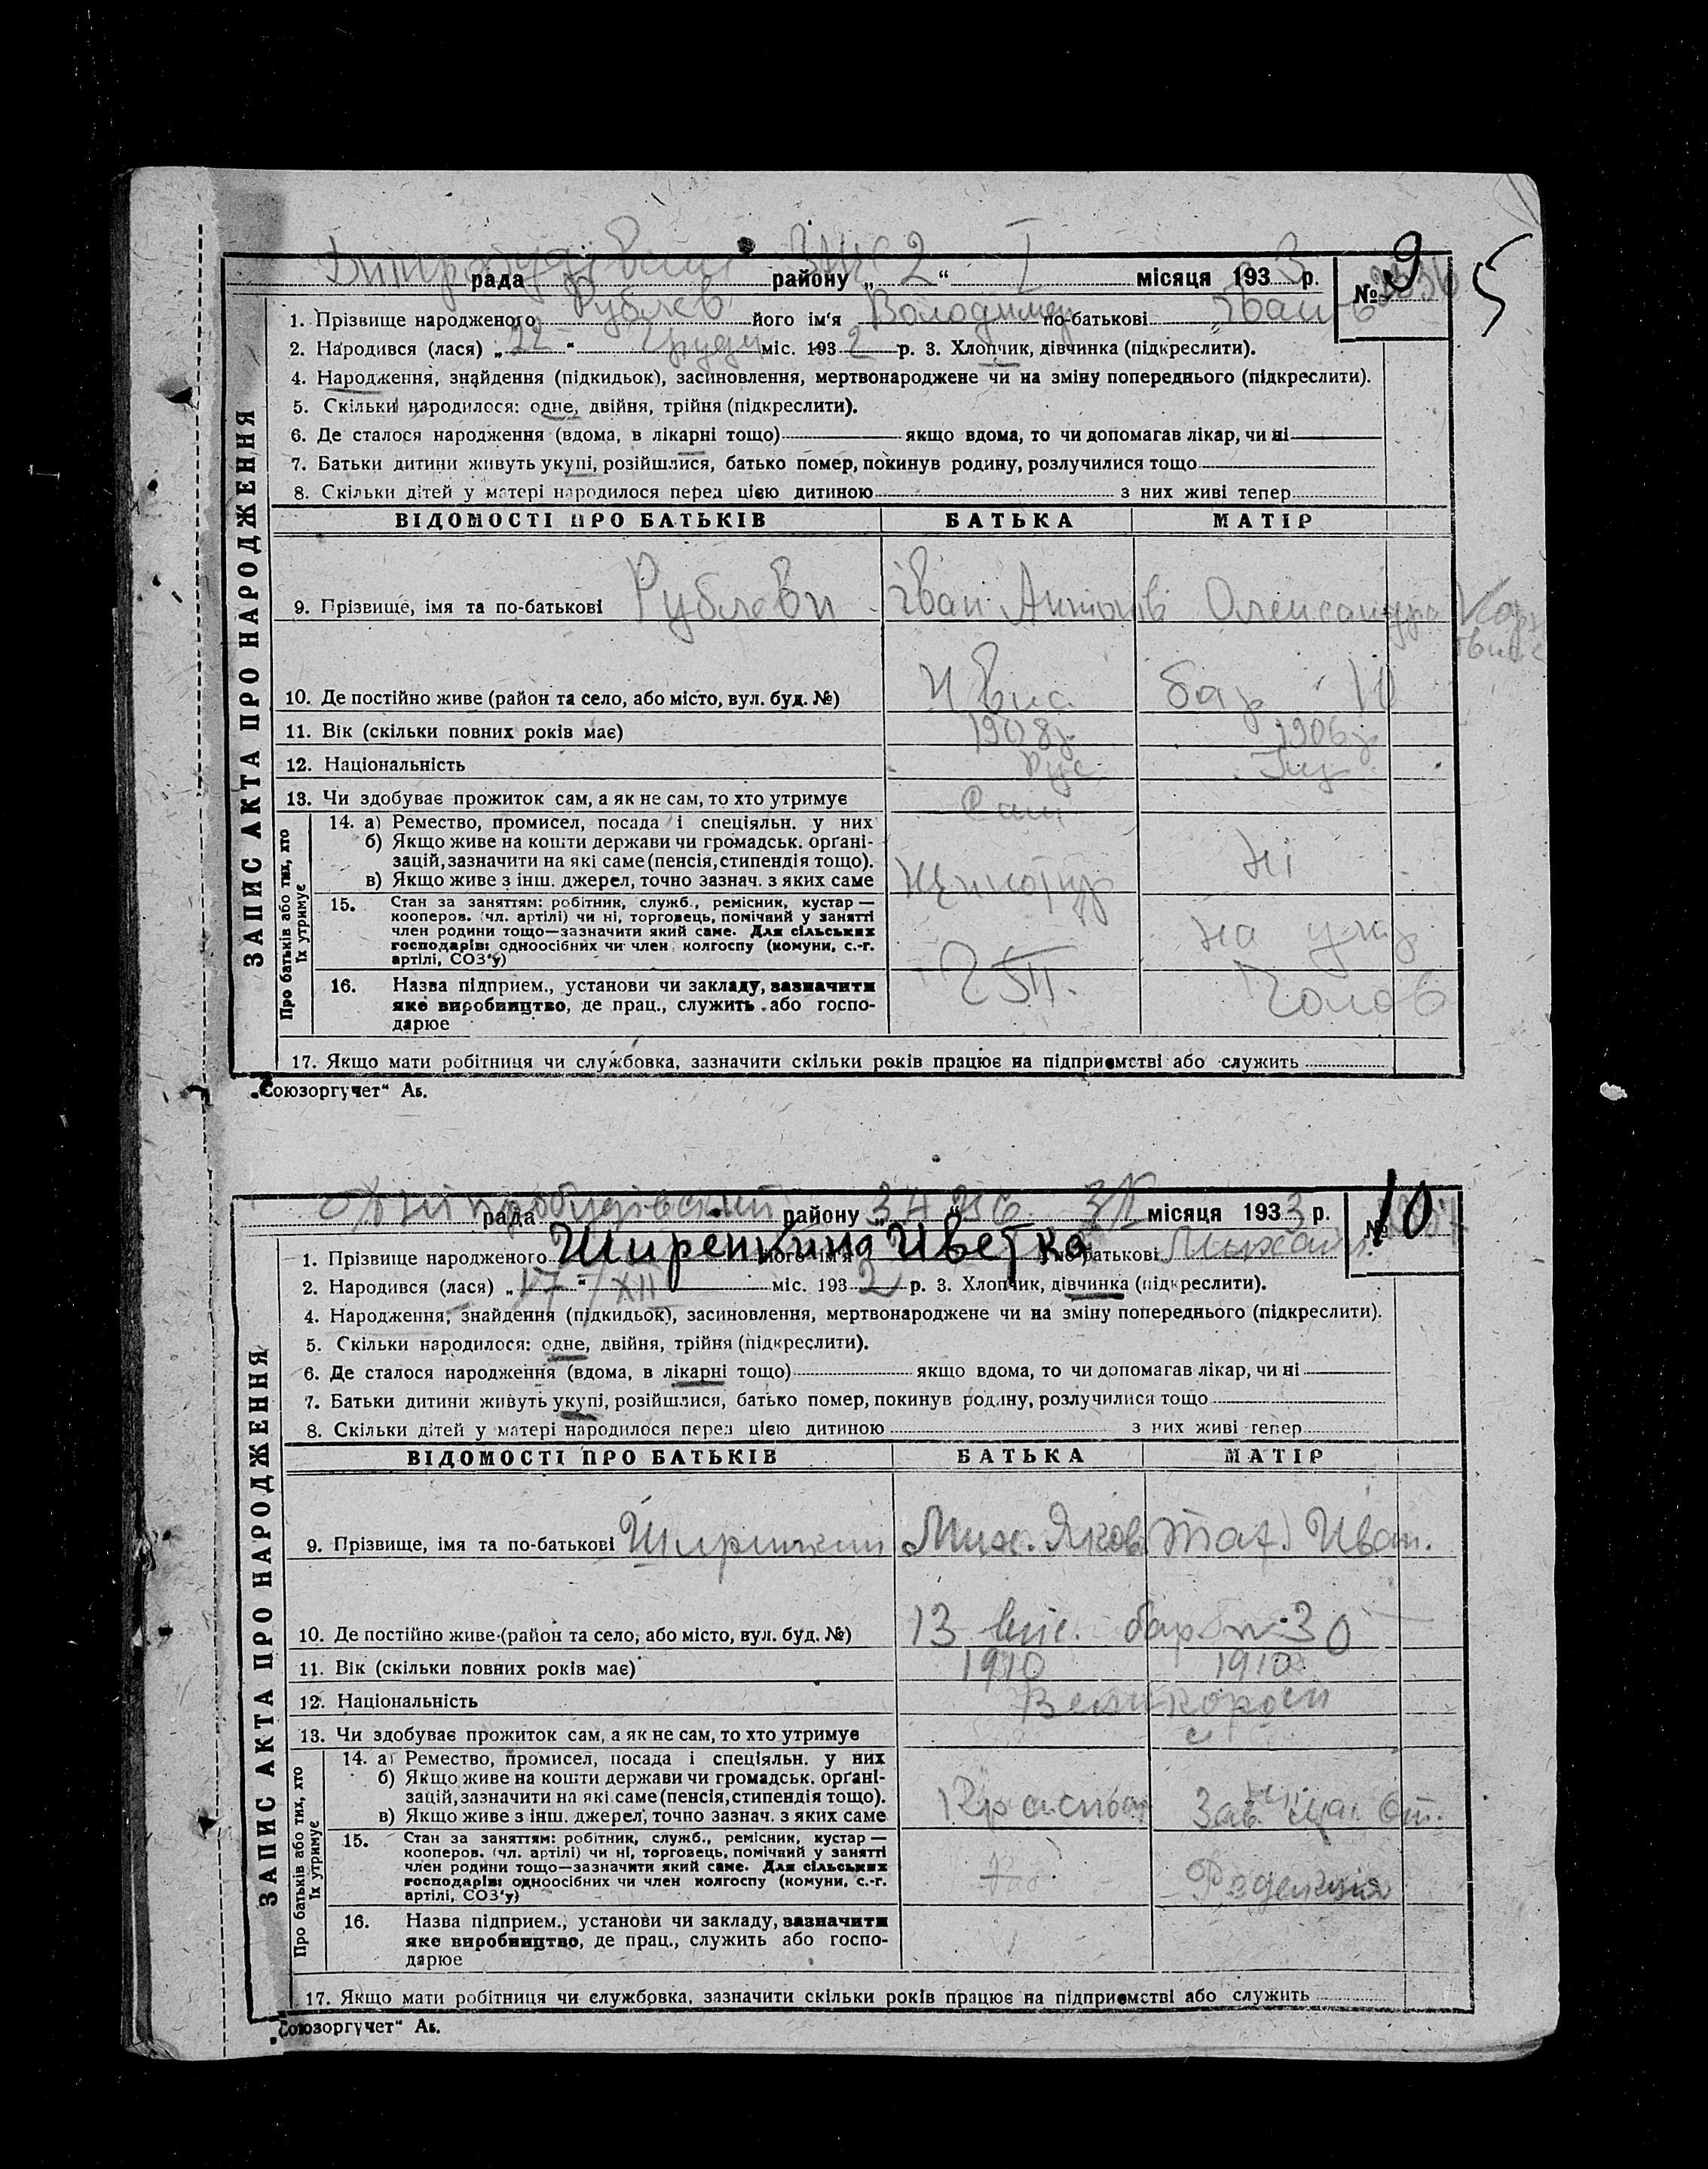 5
Дніпробудівський ЗАГС 2 I
рада району „ “ місяця 1933 р. № 9
1. Прізвище народженого Рублєв його ім'я Володимер по-батькові Іванів
2. Народився (лася) „22“ Грудн міс. 1932 р. 3. Хлопчик, дівчинка (підкреслити).
4. Народження, знайдення (підкидьок), засиновлення, мертвонароджене чи на зміну попереднього (підкреслити).
5. Скільки народилося: одне, двійня, трійня (підкреслити).
6. Де сталося народження (вдома, в лікарні тощо) якщо вдома, то чи допомагав лікар, чи ні
7. Батьки дитини живуть укупі, розійшлися, батько помер, покинув родину, розлучилися тощо
8. Скільки дітей у матері народилося перед цією дитиною з них живі тепер
ЗАПИС АКТА ПРО НАРОДЖЕННЯ
ВІДОМОСТІ ПРО БАТЬКІВ БАТЬКА МАТІР
9. Прізвище, імя та по-батькові Рублєви Іван Антонів Олександра
10. Де постійно живе (район та село, або місто, вул. буд. №) бар 10
11. Вік (скільки повних років має) 1908р 1906р
12. Національність Рус
13. Чи здобуває прожиток сам, а як не сам, то хто утримує Сам
Про батьків або тих, хто їх утримує
14. а) Ремество, промисел, посада і спеціяльн. у них
б) Якщо живе на кошти держави чи громадськ. орґані-
зацій, зазначити на які саме (пенсія, стипендія тощо). ні
в) Якщо живе з інш. джерел, точно зазнач. з яких саме
15. Стан за заняттям: робітник, служб., ремісник, кустар —
кооперов. (чл. артілі) чи ні, торговець, помічний у занятті
член родини тощо—зазначити який саме. Для сільських
господарів: одноосібних чи член колгоспу (комуни, с.-г.
артілі, СОЗ'у) на утр
16. Назва підприєм., установи чи закладу, зазначити Чолов
яке виробництво, де прац., служить або госпо-
дарює
17. Якщо мати робітниця чи службовка, зазначити скільки років працює на підприємстві або служить
„Союзоргучет“ Аб.
Дніпробудівський
рада району „ “ місяця 1933 р. № 10
1. Прізвище народженого Ширенкина його ім'я Цветка по-батькові Михайл
2. Народився (лася) „17“ XII міс. 1932 р. 3. Хлопчик, дівчинка (підкреслити).
4. Народження, знайдення (підкидьок), засиновлення, мертвонароджене чи на зміну попереднього (підкреслити).
5. Скільки народилося: одне, двійня, трійня (підкреслити).
6. Де сталося народження (вдома, в лікарні тощо) якщо вдома, то чи допомагав лікар, чи ні
7. Батьки дитини живуть укупі, розійшлися, батько помер, покинув родину, розлучилися тощо
8. Скільки дітей у матері народилося перед цією дитиною з них живі тепер
ЗАПИС АКТА ПРО НАРОДЖЕННЯ
ВІДОМОСТІ ПРО БАТЬКІВ БАТЬКА МАТІР
9. Прізвище, імя та по-батькові Мих. Яков. Тат. Иван.
10. Де постійно живе (район та село, або місто, вул. буд. №) 13 вис. бар № 30
11. Вік (скільки повних років має) 1910 1910
12. Національність Великороси
13. Чи здобуває прожиток сам, а як не сам, то хто утримує с
Про батьків або тих, хто їх утримує
14. а) Ремество, промисел, посада і спеціяльн. у них
б) Якщо живе на кошти держави чи громадськ. орґані-
зацій, зазначити на які саме (пенсія, стипендія тощо).
в) Якщо живе з інш. джерел, точно зазнач. з яких саме
15. Стан за заняттям: робітник, служб., ремісник, кустар —
кооперов. (чл. артілі) чи ні, торговець, помічний у занятті
член родини тощо—зазначити який саме. Для сільських
господарів: одноосібних чи член колгоспу (комуни, с.-г.
артілі, СОЗ'у) Редекция
16. Назва підприєм., установи чи закладу, зазначити
яке виробництво, де прац., служить або госпо-
дарює
17. Якщо мати робітниця чи службовка, зазначити скільки років працює на підприємстві або служить
„Союзоргучет“ Аб.